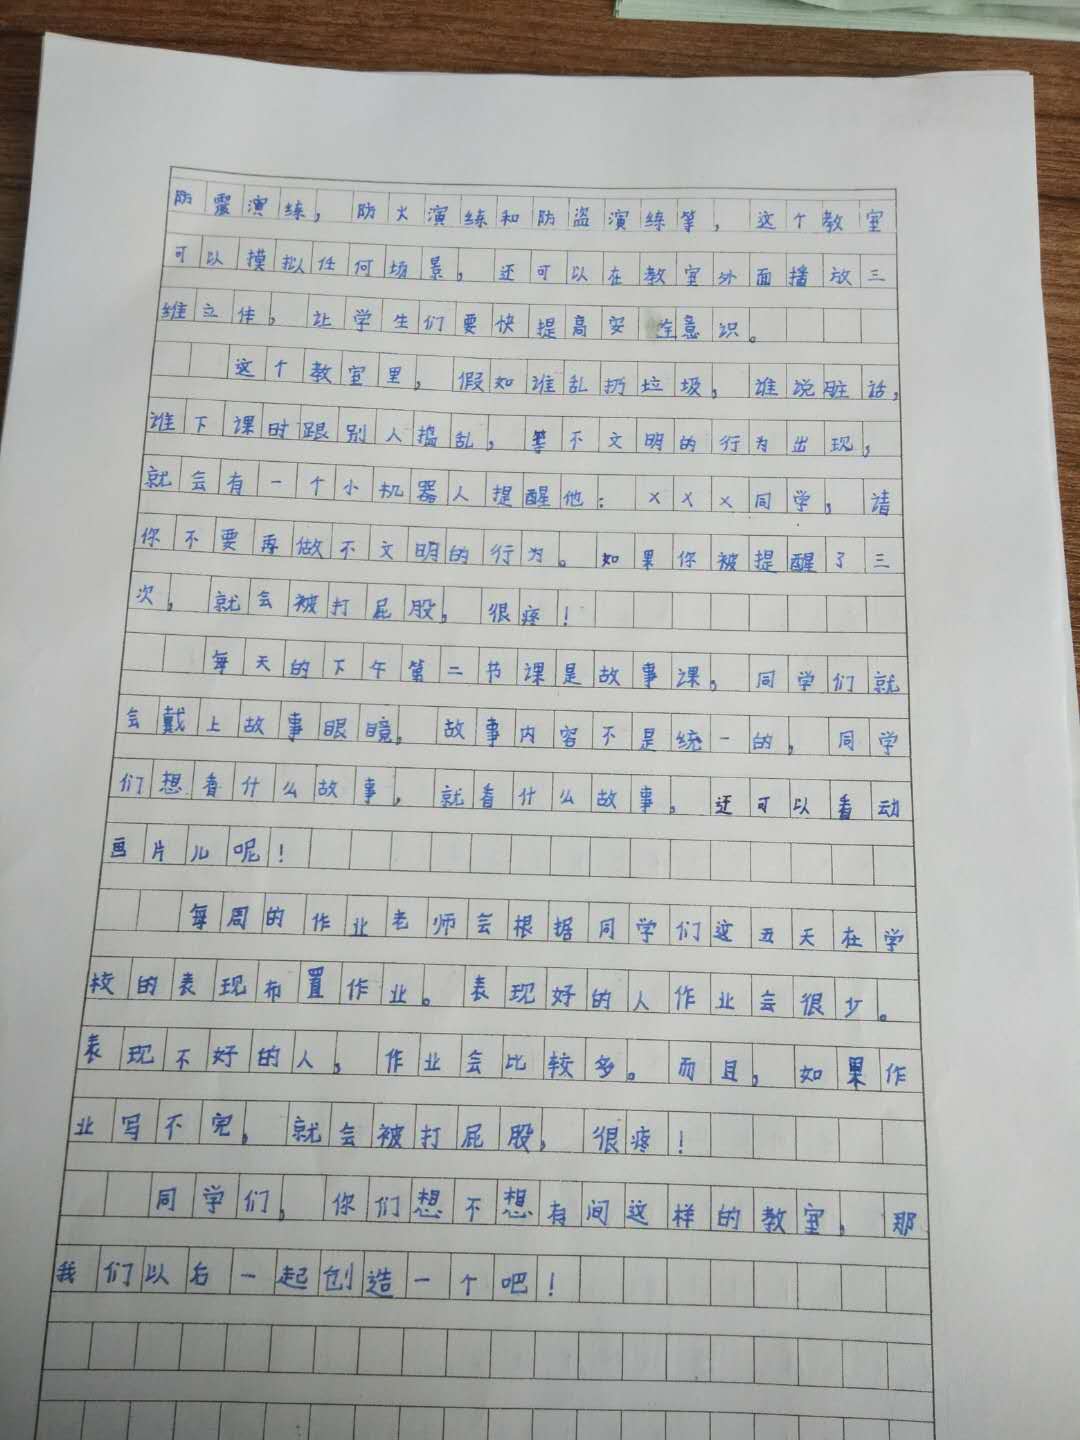 防震演练，防火演练和防盗演练等，这个教室
可以摸拟任何场景，还可以在教室外面播放三
维立体，让学生们要快提高安全意识。
这个教室里，假如谁乱扔垃圾，谁说脏话，
谁下课时跟别人捣乱，等不文明的行为出现，
就会有一个小机器人提醒他：×××同学，请
你不要再做不文明的行为。如果你被提醒了三
次，就会被打屁股，很疼！
每天的下午第二节课是故事课，同学们就
会戴上故事眼镜，故事内容不是统一的，同学
们想看什么故事，就看什么故事，还可以看动
画片儿呢！
每周的作业老师会根据同学们这五天在学
校的表现布置作业。表现好的人作业会很少。
表现不好的人，作业会比较多。而且，如果作
业写不完，就会被打屁股，很疼！
同学们，你们想不想有间这样的教室，那
我们以后一起创造一个吧！